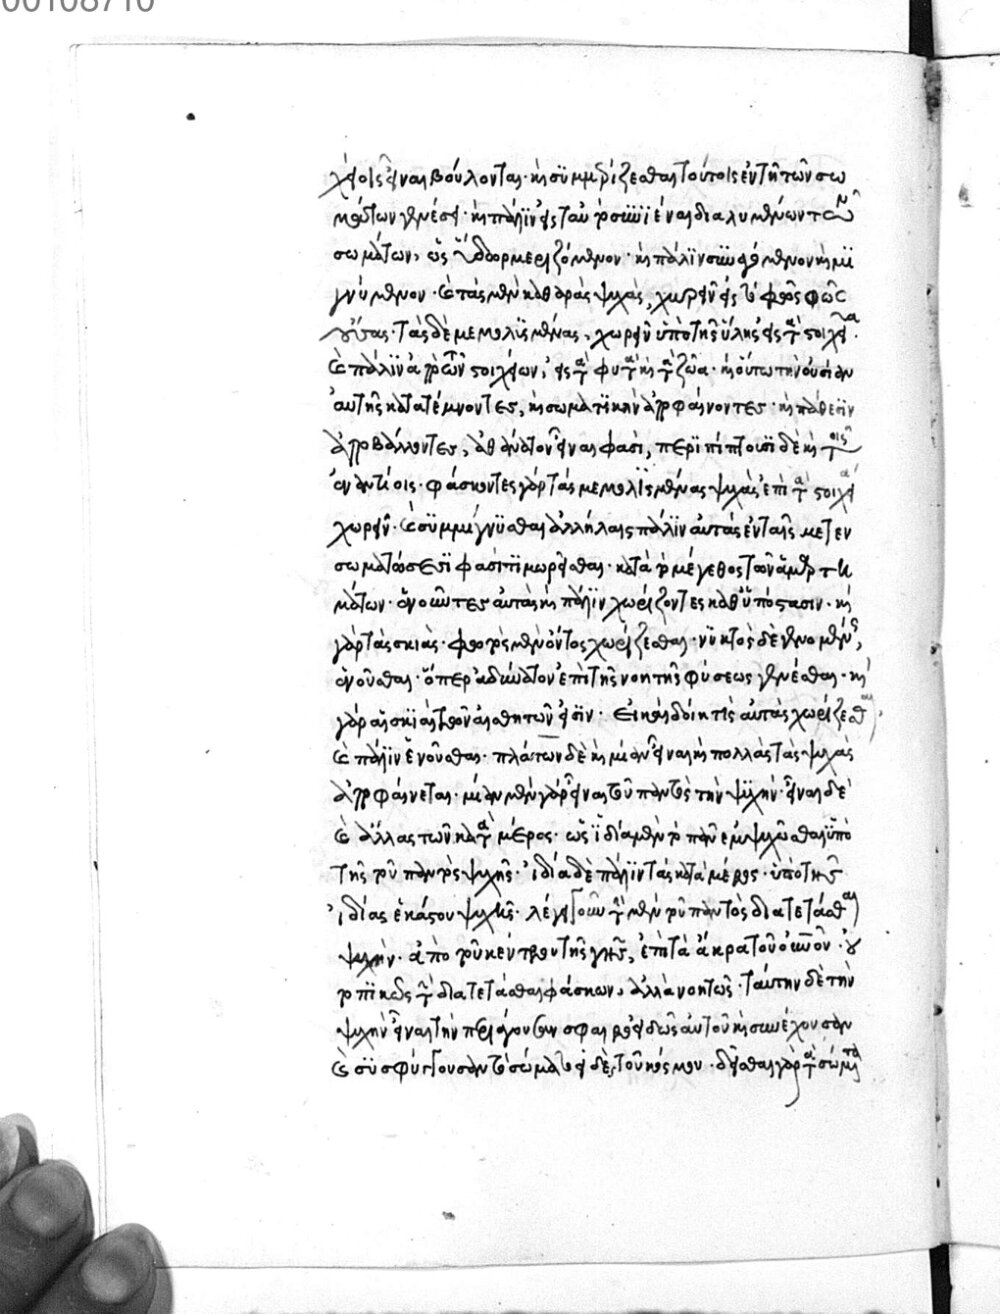 00108710
χείοις εἶναι βούλονται· καὶ συμμερίζεσθαι τούτοις ἐν τῆ τῶν σω
μάτων γενέσει· καὶ πάλιν εἰς ταὐτὸ συνιέναι διαλυμένων τῶν
σωμάτων, ὡς ὕδωρ μεριζόμενον· καὶ πάλιν συναγόμενον καὶ μι
γνύμενον· καὶ τὰς μὲν καθαρὰς ψυχὰς, χωρεῖν εἰς τὸ φῶς φῶς
οὔσας· τὰς δὲ μεμολυσμένας, χωρεῖν ὑπὸ τῆς ὕλης εἰς τὰ στοιχεῖα·
καὶ πάλιν ἀπὸ τῶν στοιχείων, εἰς τὰ φυτὰ καὶ τὰ ζῶα· καὶ οὕτω τὴν οὐσίαν
αὐτῆς κατατέμνοντες, καὶ σωματικὴν ἀποφαίνοντες· καὶ πάθεσιν
ἀποβάλλοντες, ἀθάνατον εἶναι φασὶ, περιπίπτουσι δὲ καὶ τοῖς
ἐναντίοις· φάσκοντες γὰρ τὰς μεμολυσμένας ψυχὰς ἐπὶ τὰ στοιχεῖα
χωρεῖν· καὶ συμμίγνυσθαι ἀλλήλαις πάλιν αὐτὰς ἐν ταῖς μετεν
σωματώσεσι φασὶ τιμωρεῖσθαι· κατὰ τὸ μέγεθος τῶν ἁμαρτη
μάτων· ἑνοῦντες αὐτὰς καὶ πάλιν χωρίζοντες καθ' ὑπόστασιν· καὶ
γὰρ τὰς σκιὰς· φωτὸς μὲν ὄντος χωρίζεσθαι· νυκτὸς δὲ γενομένης,
ἑνοῦσθαι· ὅπερ ἀδύνατον ἐπὶ τῆς νοητῆς φύσεως γενέσθαι· καὶ
γὰρ αἱ σκιαὶ τῶν αἰσθητῶν εἰσὶν· εἰ καὶ δοίη τὶς αὐτὰς χωρίζεσθαι,
καὶ πάλιν ἑνοῦσθαι· πλάτων δὲ καὶ μίαν εἶναι καὶ πολλὰς τὰς ψυχὰς
ἀποφαίνεται· μίαν μὲν γὰρ εἶναι τοῦ παντὸς τὴν ψυχήν· εἶναι δὲ
καὶ ἄλλας τῶν κατὰ μέρος· ὡς ἰδία μὲν τὸ πᾶν ἐμψυχῶσθαι ὑπὸ
τῆς τοῦ παντὸς ψυχῆς· ἰδία δὲ πάλιν τὰ κατὰ μέρος· ὑπὸ τῆς
ἰδίας ἑκάστου ψυχῆς· λέγει οὖν τὴν μὲν τοῦ παντὸς διατετάσθαι
ψυχὴν· ἀπὸ τοῦ κέντρου τῆς γῆς, ἐπὶ τὰ ἄκρα τοῦ οὐρανοῦ· οὐ
τοπικῶς τὴν διατετάσθαι φάσκων, ἀλλὰ νοητῶς· ταύτην δὲ τὴν
ψυχὴν εἶναι τὴν περιάγουσαν σφαιροειδῶς αὐτοῦ καὶ συνέχουσαν
καὶ συσφίγγουσαν τὸ σωματοειδὲς τοῦ κόσμου· δεῖσθαι γὰρ τὰ σώματα